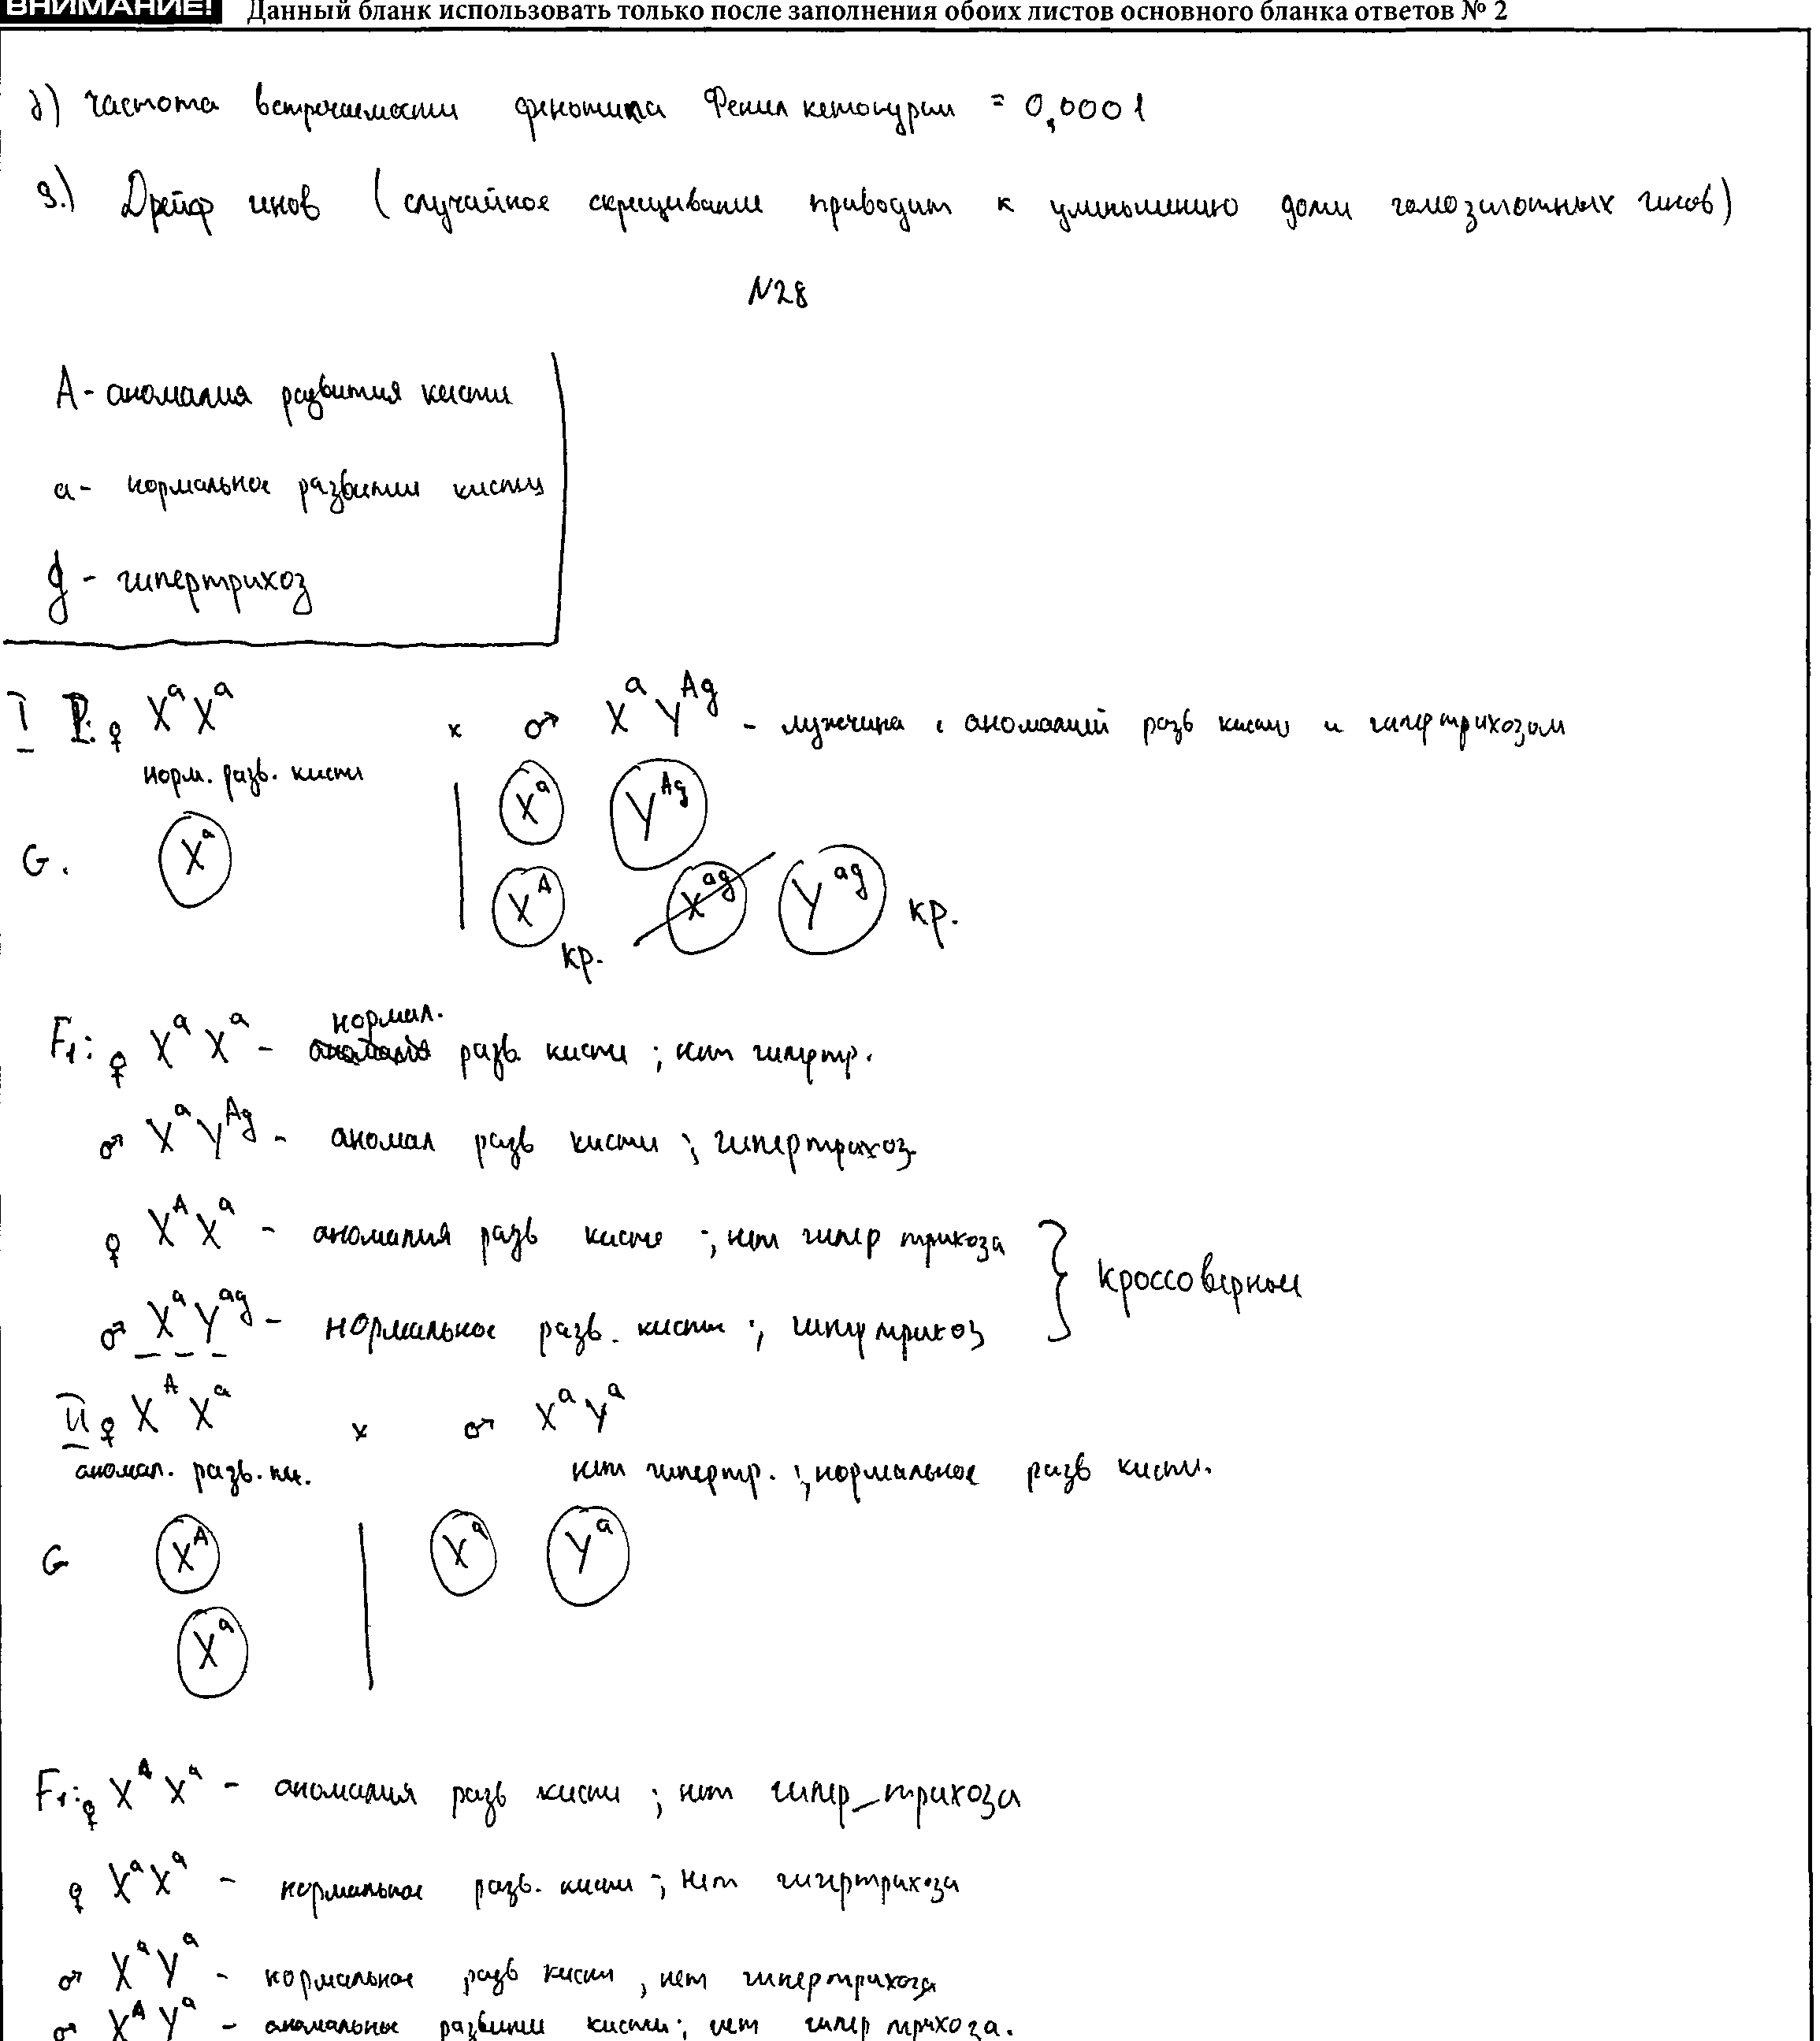 ВНИМАНИЕ! Данный бланк использовать только после заполнения обоих листов основного бланка ответов № 2
д) частота встречаемости фенотипа Фенилкетонурии = 0,0001
э.) Дрейф генов (случайное скрещивание приводит к уменьшению доли гомозиготных генов)
N28
A - аномалия развития кисти
a - нормальное развитие кисти
g - гипертрихоз
I P: ♀ XᵃXᵃ x ♂ XᵃYᴬᵍ - мужчина с аномалией разв кисти и гипертрихозом
норм. разв. кисти
G. Xᵃ | Xᵃ Yᴬᵍ
Xᴬ кр. Xᵃᵍ Yᵃᵍ кр.
F₁: ♀ XᵃXᵃ - нормал. разв. кисти ; нет гипертр.
♂ XᵃYᴬᵍ - аномал разв кисти ; гипертрихоз
♀ XᴬXᵃ - аномалия разв кисти ; нет гипер трихоза
♂ XᵃYᵃᵍ - нормальное разв. кисти ; гипертрихоз } кроссоверные
II ♀ XᴬXᵃ x ♂ XᵃYᵃ
аномал. разв. ки. нет гипертр. ; нормальное разв кисти.
G Xᴬ | Xᵃ Yᵃ
Xᵃ
F₁: ♀ XᴬXᵃ - аномалия разв кисти ; нет гипер_трихоза
♀ XᵃXᵃ - нормальное разв. кисти ; нет гипертрихоза
♂ XᵃYᵃ - нормальное разв кисти , нет гипертрихоза
♂ XᴬYᵃ - аномальные развитие кисти ; нет гипер трихоза.